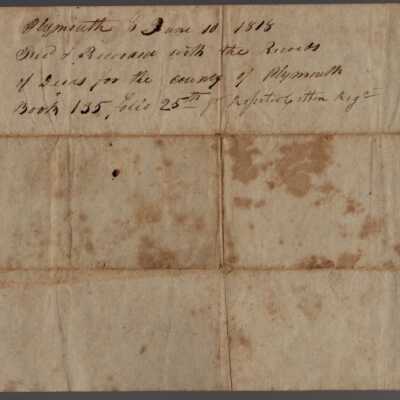 Plymouth ss June 10 1818
Recd & Recorded with the Records
of Deeds for the county of Plymouth
Book 135 folio 25th pr Rossiter Cotton Regr